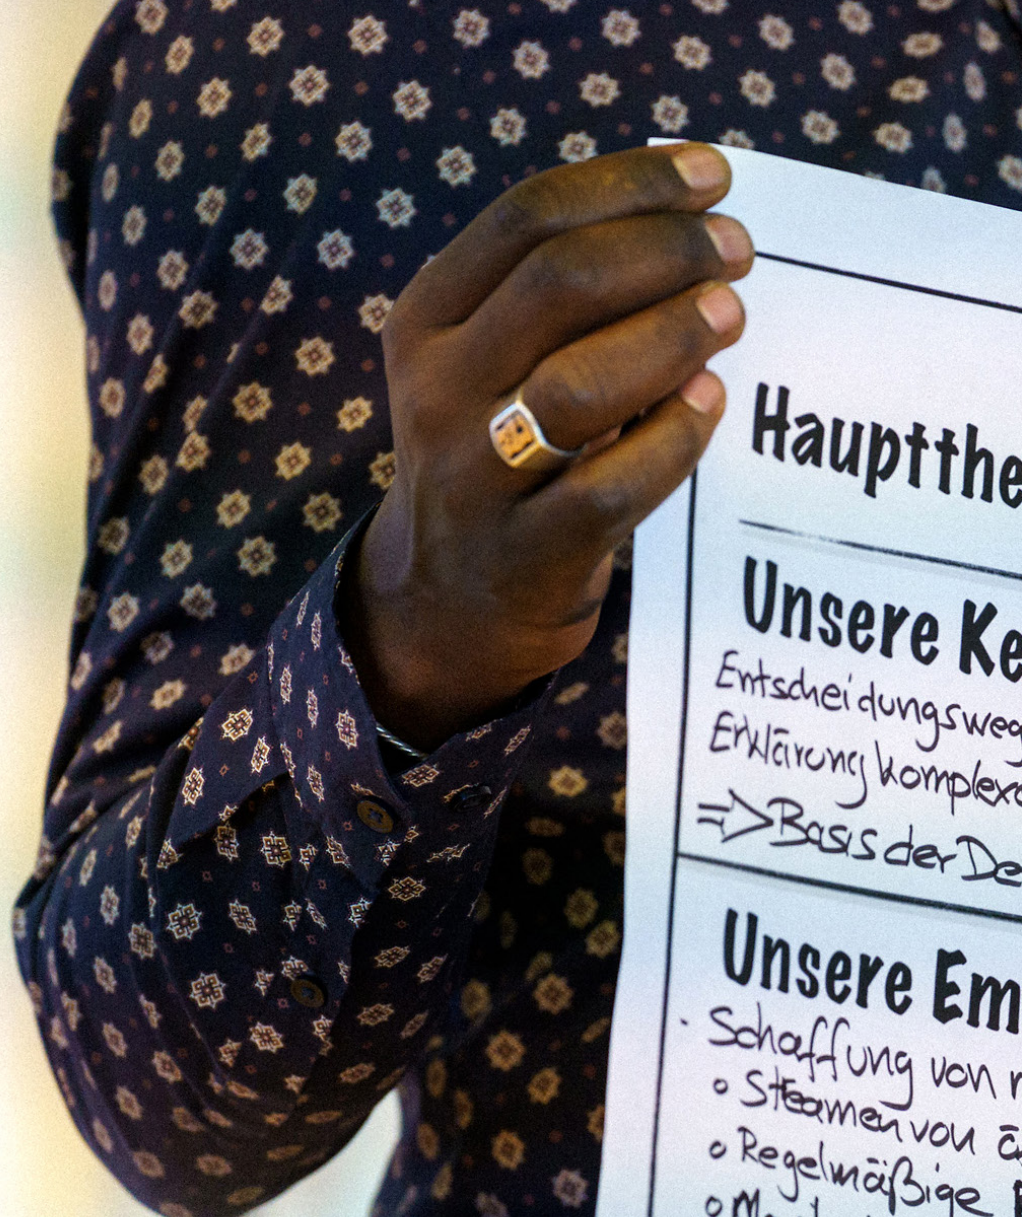 Hauptthe
Unsere Ke
Entscheidungsweg
Erklärung komplexe
=> Basis der De
Unsere Em
· Schaffung von
o Steamen von
o Regelmäßige